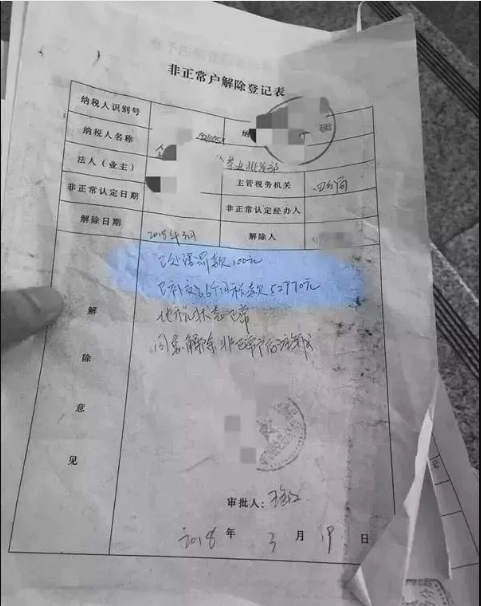 非正常户解除登记表
纳税人识别号
纳税人名称 纳
法人（业主） 业批发部
非正常认定日期 主管税务机关 四分局
非正常认定经办人
解除日期 2018年3月 解除人
解除意见
已处理罚款100元
已补交16个月税款52970元
其他状态正常
同意解除非正常户
审批人：
2018 年 3 月 19 日